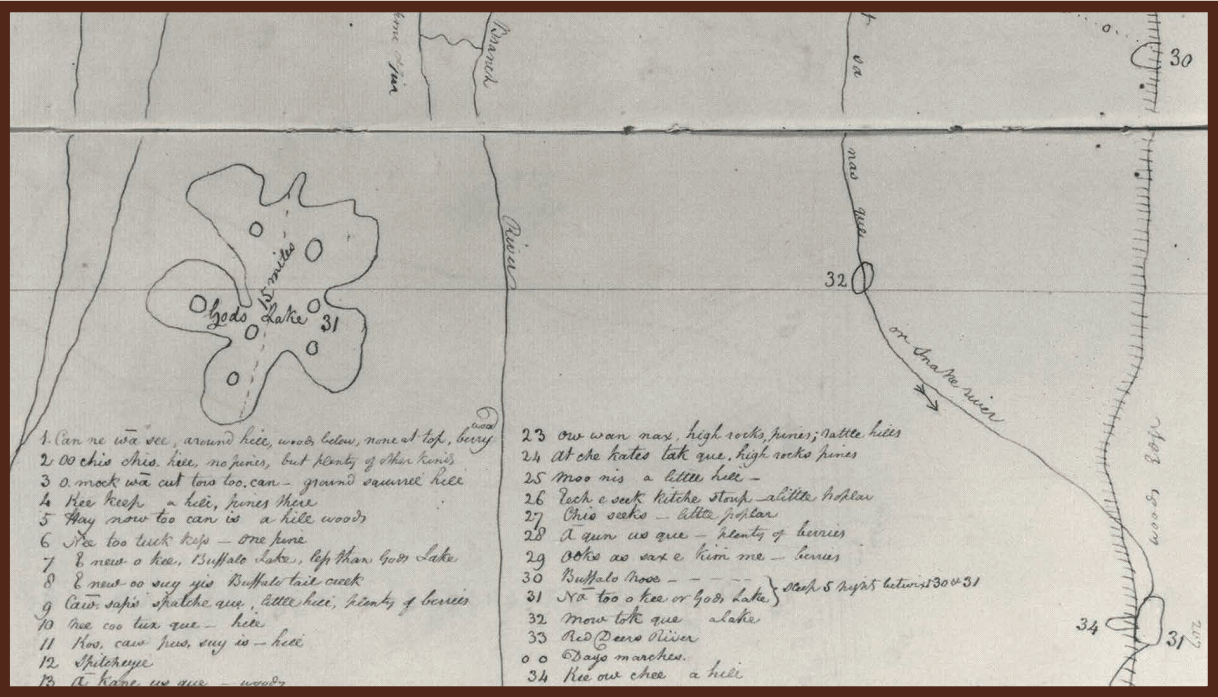 Branch
sa
30
nas que
River
15 miles
Gods Lake 31
32
or Snake river
woods Edge
wood
1 Can ne wā see, around hill, woods below, none at top, berry
2 oo chis chis. hill, no pines, but plenty of other kinds
3 o. mock wā cut tois too. can - ground squirrel hill
4 Kee keep a hill, pines there
5 Hay now too can is a hill woods
6 Na too tuck keps - one pine
7 E new o kee, Buffalo Lake, less than Gods Lake
8 E new oo suy yis Buffalo tail creek
9 Caw saps spatche que, little hill, plenty of berries
10 nee coo tux que - hill
11 Kos, caw pus, suy is - hill
12 Spitcheyee
13 Ā kane us que - woods
23 ow wan nax, high rocks, pines; rattle hills
24 At che kates tak que, high rocks pines
25 Moo nis a little hill -
26 Eech e seek kitche stoup - a little Poplar
27 Chis seeks - little poplar
28 Ā qun us que - plenty of berries
29 Ooks as sax e kim me - berries
30 Buffalo Nose - - - - -
31 Nā too o kee or Gods Lake } sleep 5 nights between 30 & 31
32 Mow tok que a lake
33 Red Deers River
0 0 Days marches.
34 Kee ow chee a hill
34
31
207